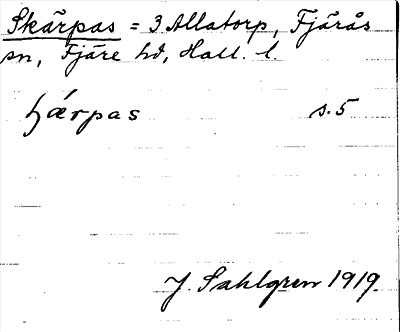 Skärpas = 3 Allatorp, Fjärås
sn, Fjäre hd, Hall. l.
ʃǽrpas s. 5
J. Sahlgren 1919.